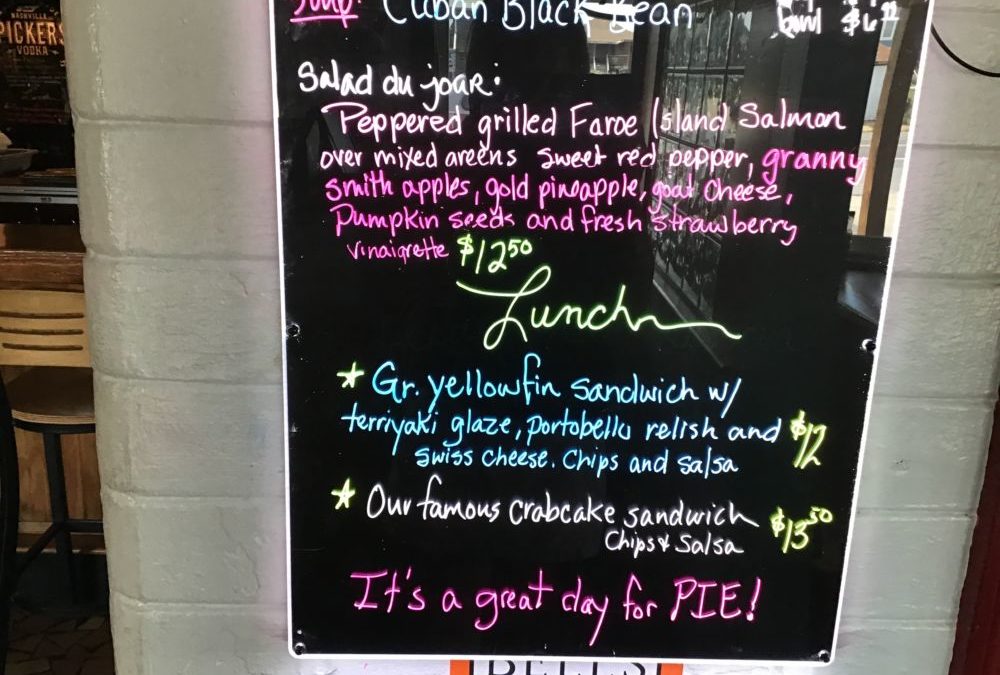 NASHVILLE
PICKERS
VODKA
Soup: Cuban Black Bean
bowl $6
Salad du joar:
Peppered grilled Faroe Island Salmon
over mixed greens sweet red pepper, granny
smith apples, gold pineapple, goat cheese,
Pumpkin seeds and fresh strawberry
vinaigrette $12.50
Lunch
* Gr. yellowfin sandwich w/
terriyaki glaze, portobello relish and $12
swiss cheese. Chips and salsa
* Our famous crabcake sandwich $13.50
Chips & Salsa
It's a great day for PIE!
BELLS